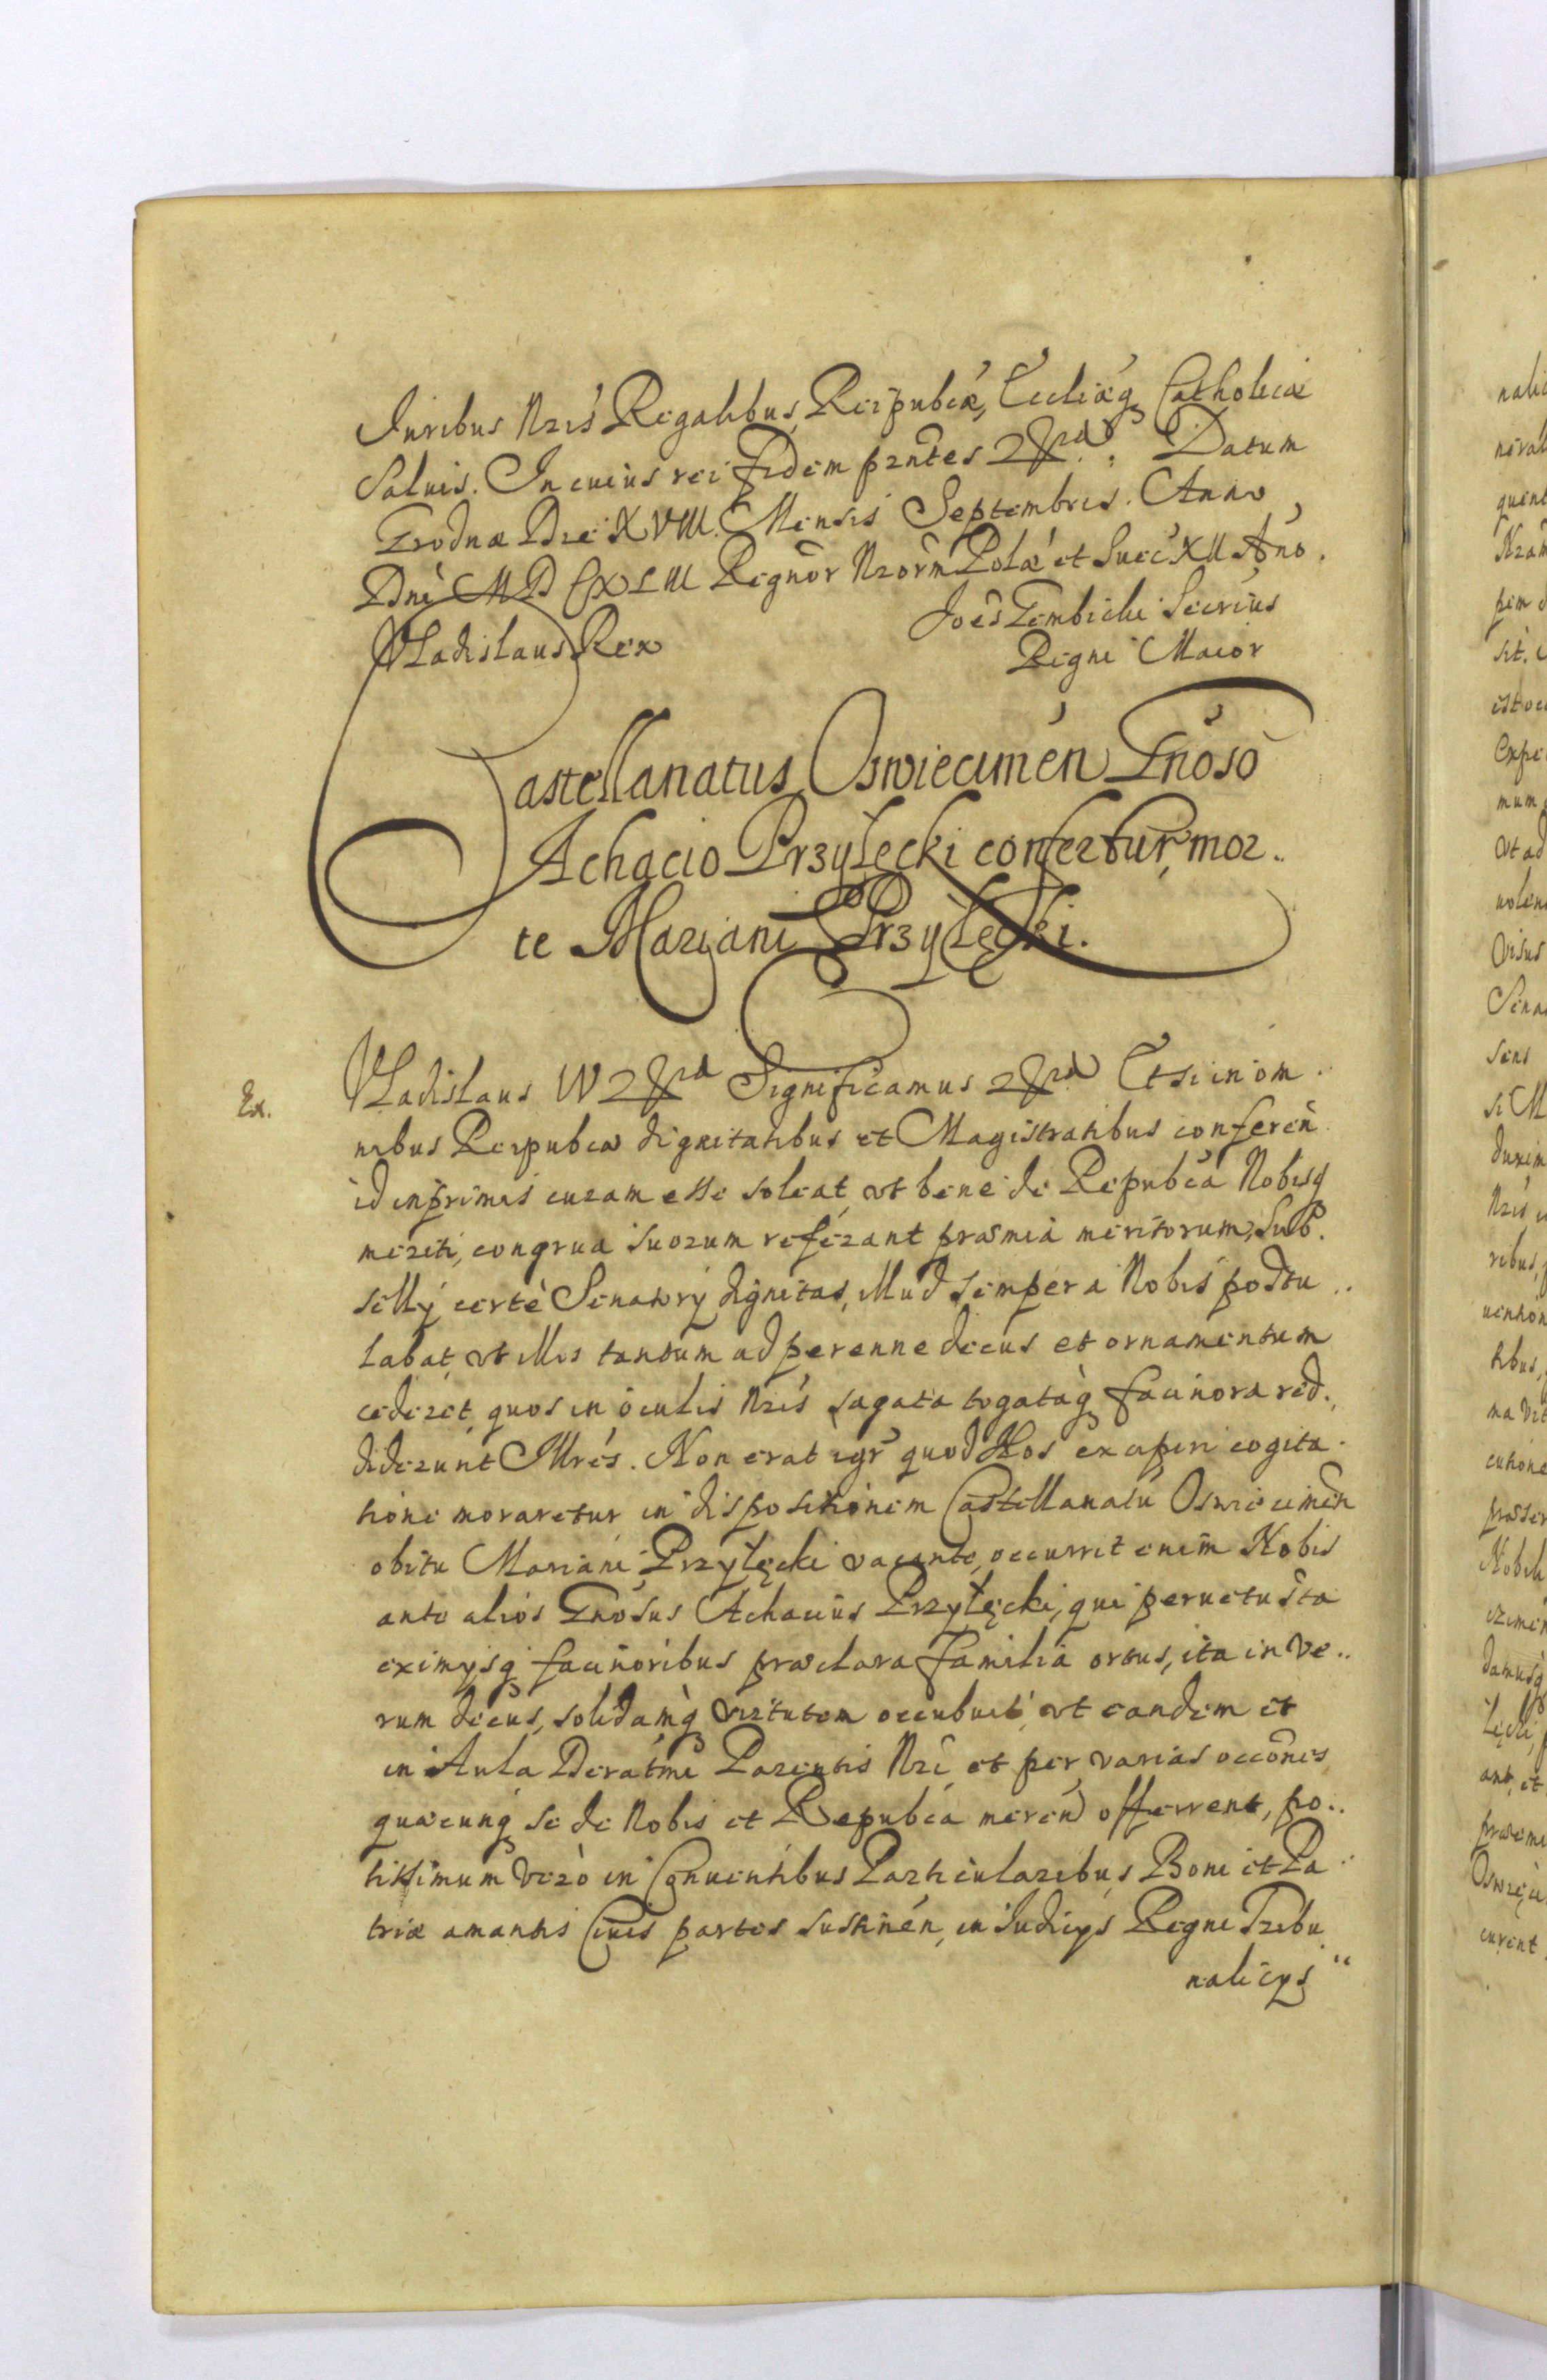 Iuribus Nris Regalibus, Reipubcæ, Eccliæq Catholicæ
Saluis. In cuius rei fidem pntes Datum
Grodnæ Die XVIII. Mensis Septembris. Anno
Dni MDCXLIII Regnor Nrorm Polæ et Suec XII Ano.
Joes Gembicki Secrius
Vladislaus Rex
Regni Maior
Castellanatus Oswiecimen Gnoso
Achacio Przyłęcki confertur, mor..
te Mariani Przyłęcki.
Ex.
Vladislaus IV Significamus Etsi in om.
nibus Reipubcæ dignitatibus et Magistratibus conferen
id inprimis curam esse soleat, vt bene de Repubca Nobisq
meriti, congrua suorum referant præmia meritorum, Sub.
sellÿ certè Senatorÿ dignitas, illud semper a Nobis postu..
labat, vt illis tantum ad perenne decus et ornamentum
cederet, quos in oculis Nris sagata togataq facinora red.
diderunt Illres. Non erat igr quod Nos excipiri cogita.
tione moraretur in dispositionem Castellanatu Oswiecimen
obitu Mariani Przyłęcki vacante, occurrit enim Nobis
ante alios Gnosus Achacius Przyłęcki, qui peruetusta
eximÿsq facinoribus præclara familia ortus, ita in ve..
rum decus, solidamq virtutem occubuit, vt eandem et
in Aula Deratmi Parentis Nri et per varias occones
quæcunq se de Nobis et Repubca meren offerrent, po..
tissimum verò in Conuentibus Particularibus Boni et Pa.
triæ amantis Ciuis partes sustinen, in Iudicÿs Regni Tribu
nalicÿs
nalic